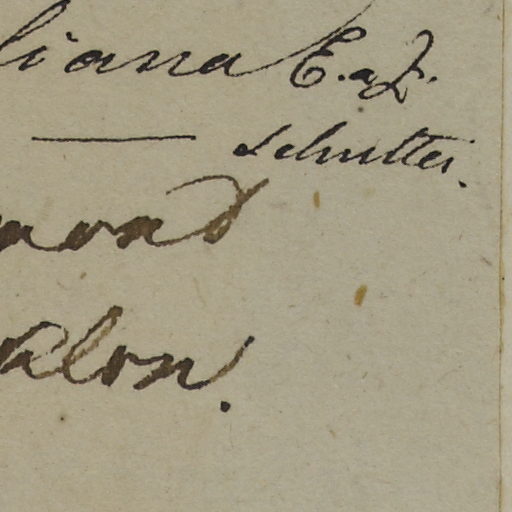 liana E. a Z.
— Schutter.
mond
klon.